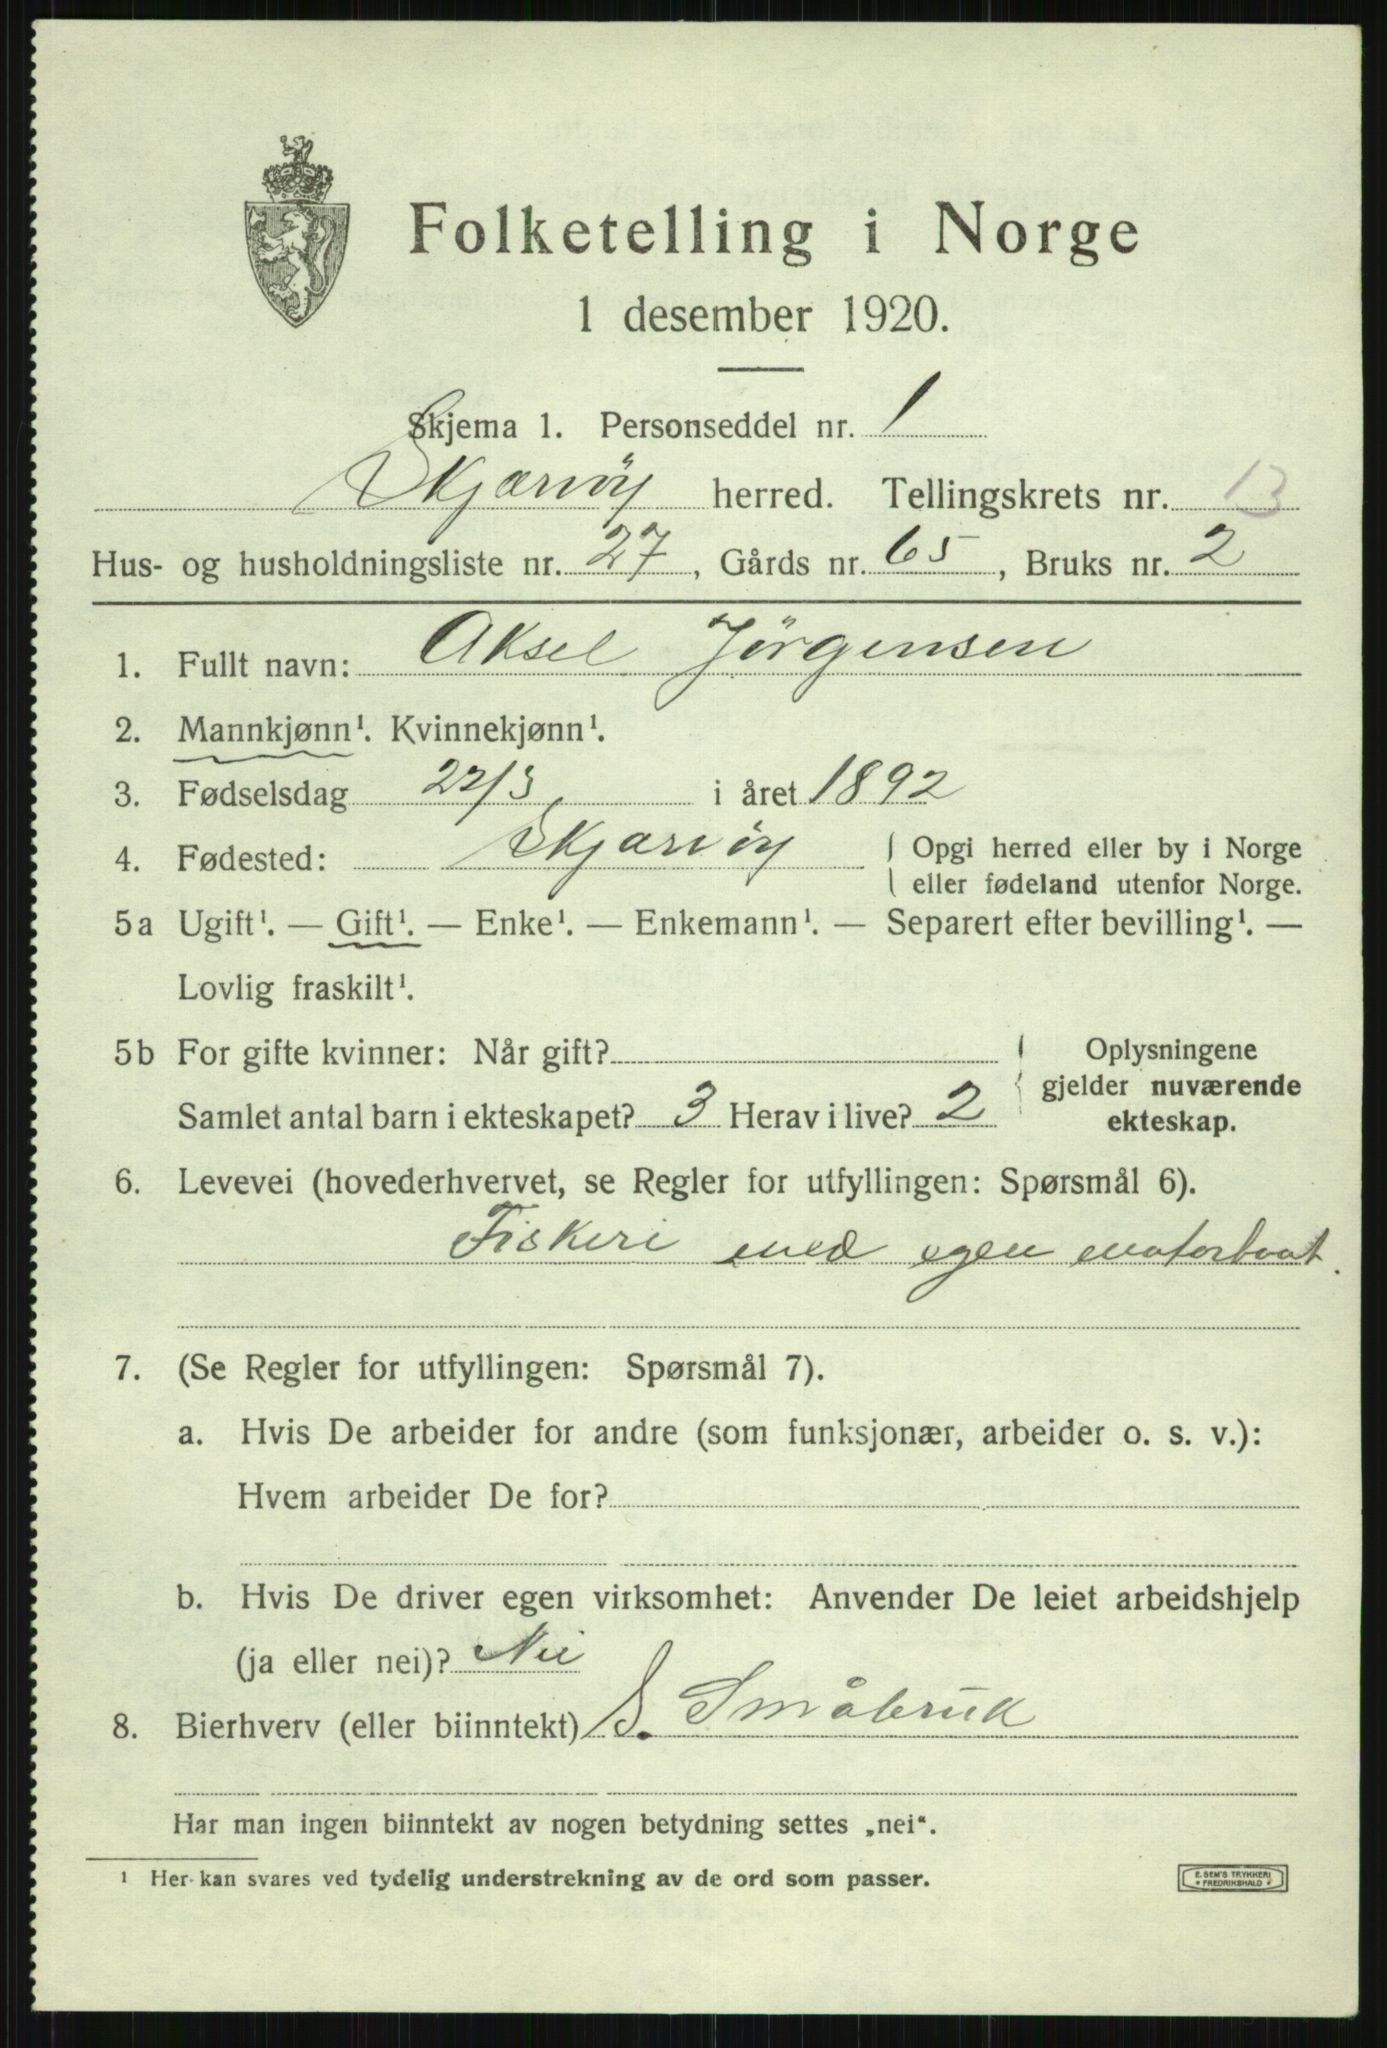 Folketelling i Norge
1 desember 1920.
Skjema 1. Personseddel nr. 1
Skjærvøy herred. Tellingskrets nr. 13
Hus- og husholdningsliste nr. 27, Gårds nr. 65, Bruks nr. 2
1. Fullt navn: Aksel Jörgensen
2. Mannkjønn¹. Kvinnekjønn¹.
3. Fødselsdag 22/3 i året 1892
4. Fødested: Skjærvöy { Opgi herred eller by i Norge
eller fødeland utenfor Norge.
5a Ugift¹. — Gift¹. — Enke¹. — Enkemann¹. — Separert efter bevilling¹. —
Lovlig fraskilt¹.
5b For gifte kvinner: Når gift? { Oplysningene
gjelder nuværende
Samlet antal barn i ekteskapet? 3 Herav i live? 2 ekteskap.
6. Levevei (hovederhvervet, se Regler for utfyllingen: Spørsmål 6).
Fiskeri med egen motorbaat.
7. (Se Regler for utfyllingen: Spørsmål 7).
a. Hvis De arbeider for andre (som funksjonær, arbeider o. s. v.):
Hvem arbeider De for?
b. Hvis De driver egen virksomhet: Anvender De leiet arbeidshjelp
(ja eller nei)? Nei
8. Bierhverv (eller biinntekt) S. Småbruk
Har man ingen biinntekt av nogen betydning settes „nei“.
¹ Her kan svares ved tydelig understrekning av de ord som passer.
E. SEM'S TRYKKERI
* FREDRIKSHALD *